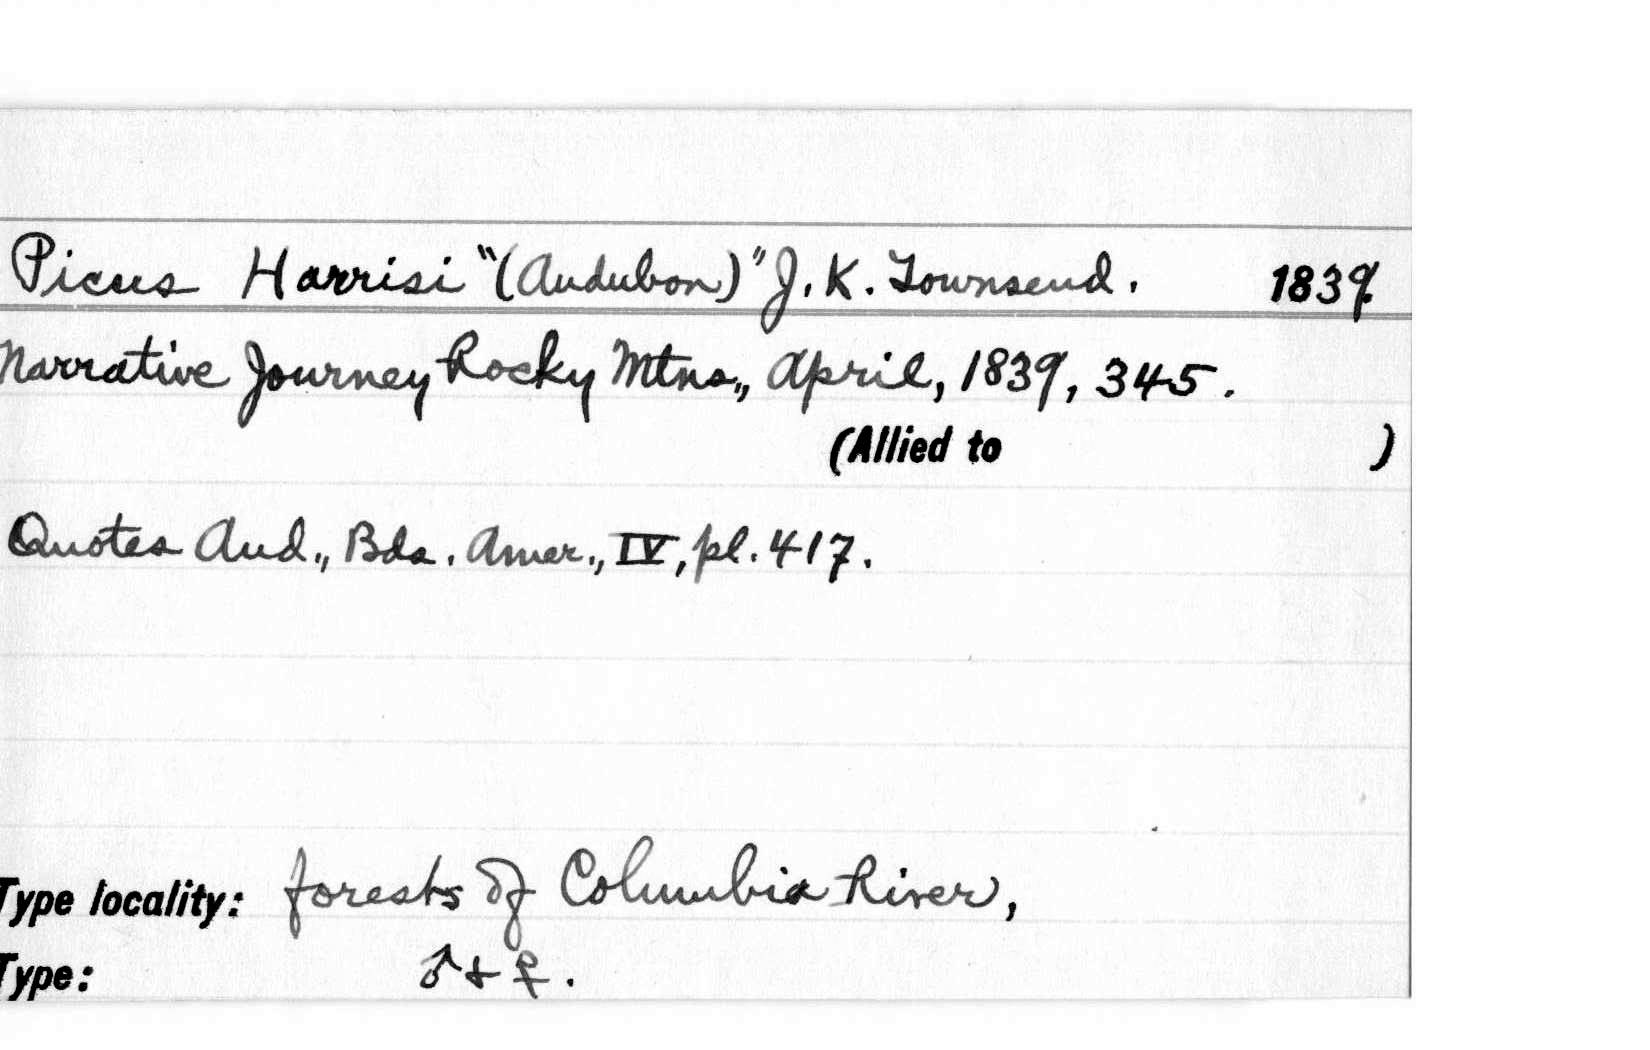 Picus Harrisi "(Audubon)" J. K. Townsend. 1839.
Narrative Journey Rocky Mtns., April, 1839, 345.
(Allied to )
Quotes Aud., Bds. Amer., IV, pl. 417.
Type locality: forests of Columbia River,
Type: ♂ + ♀.